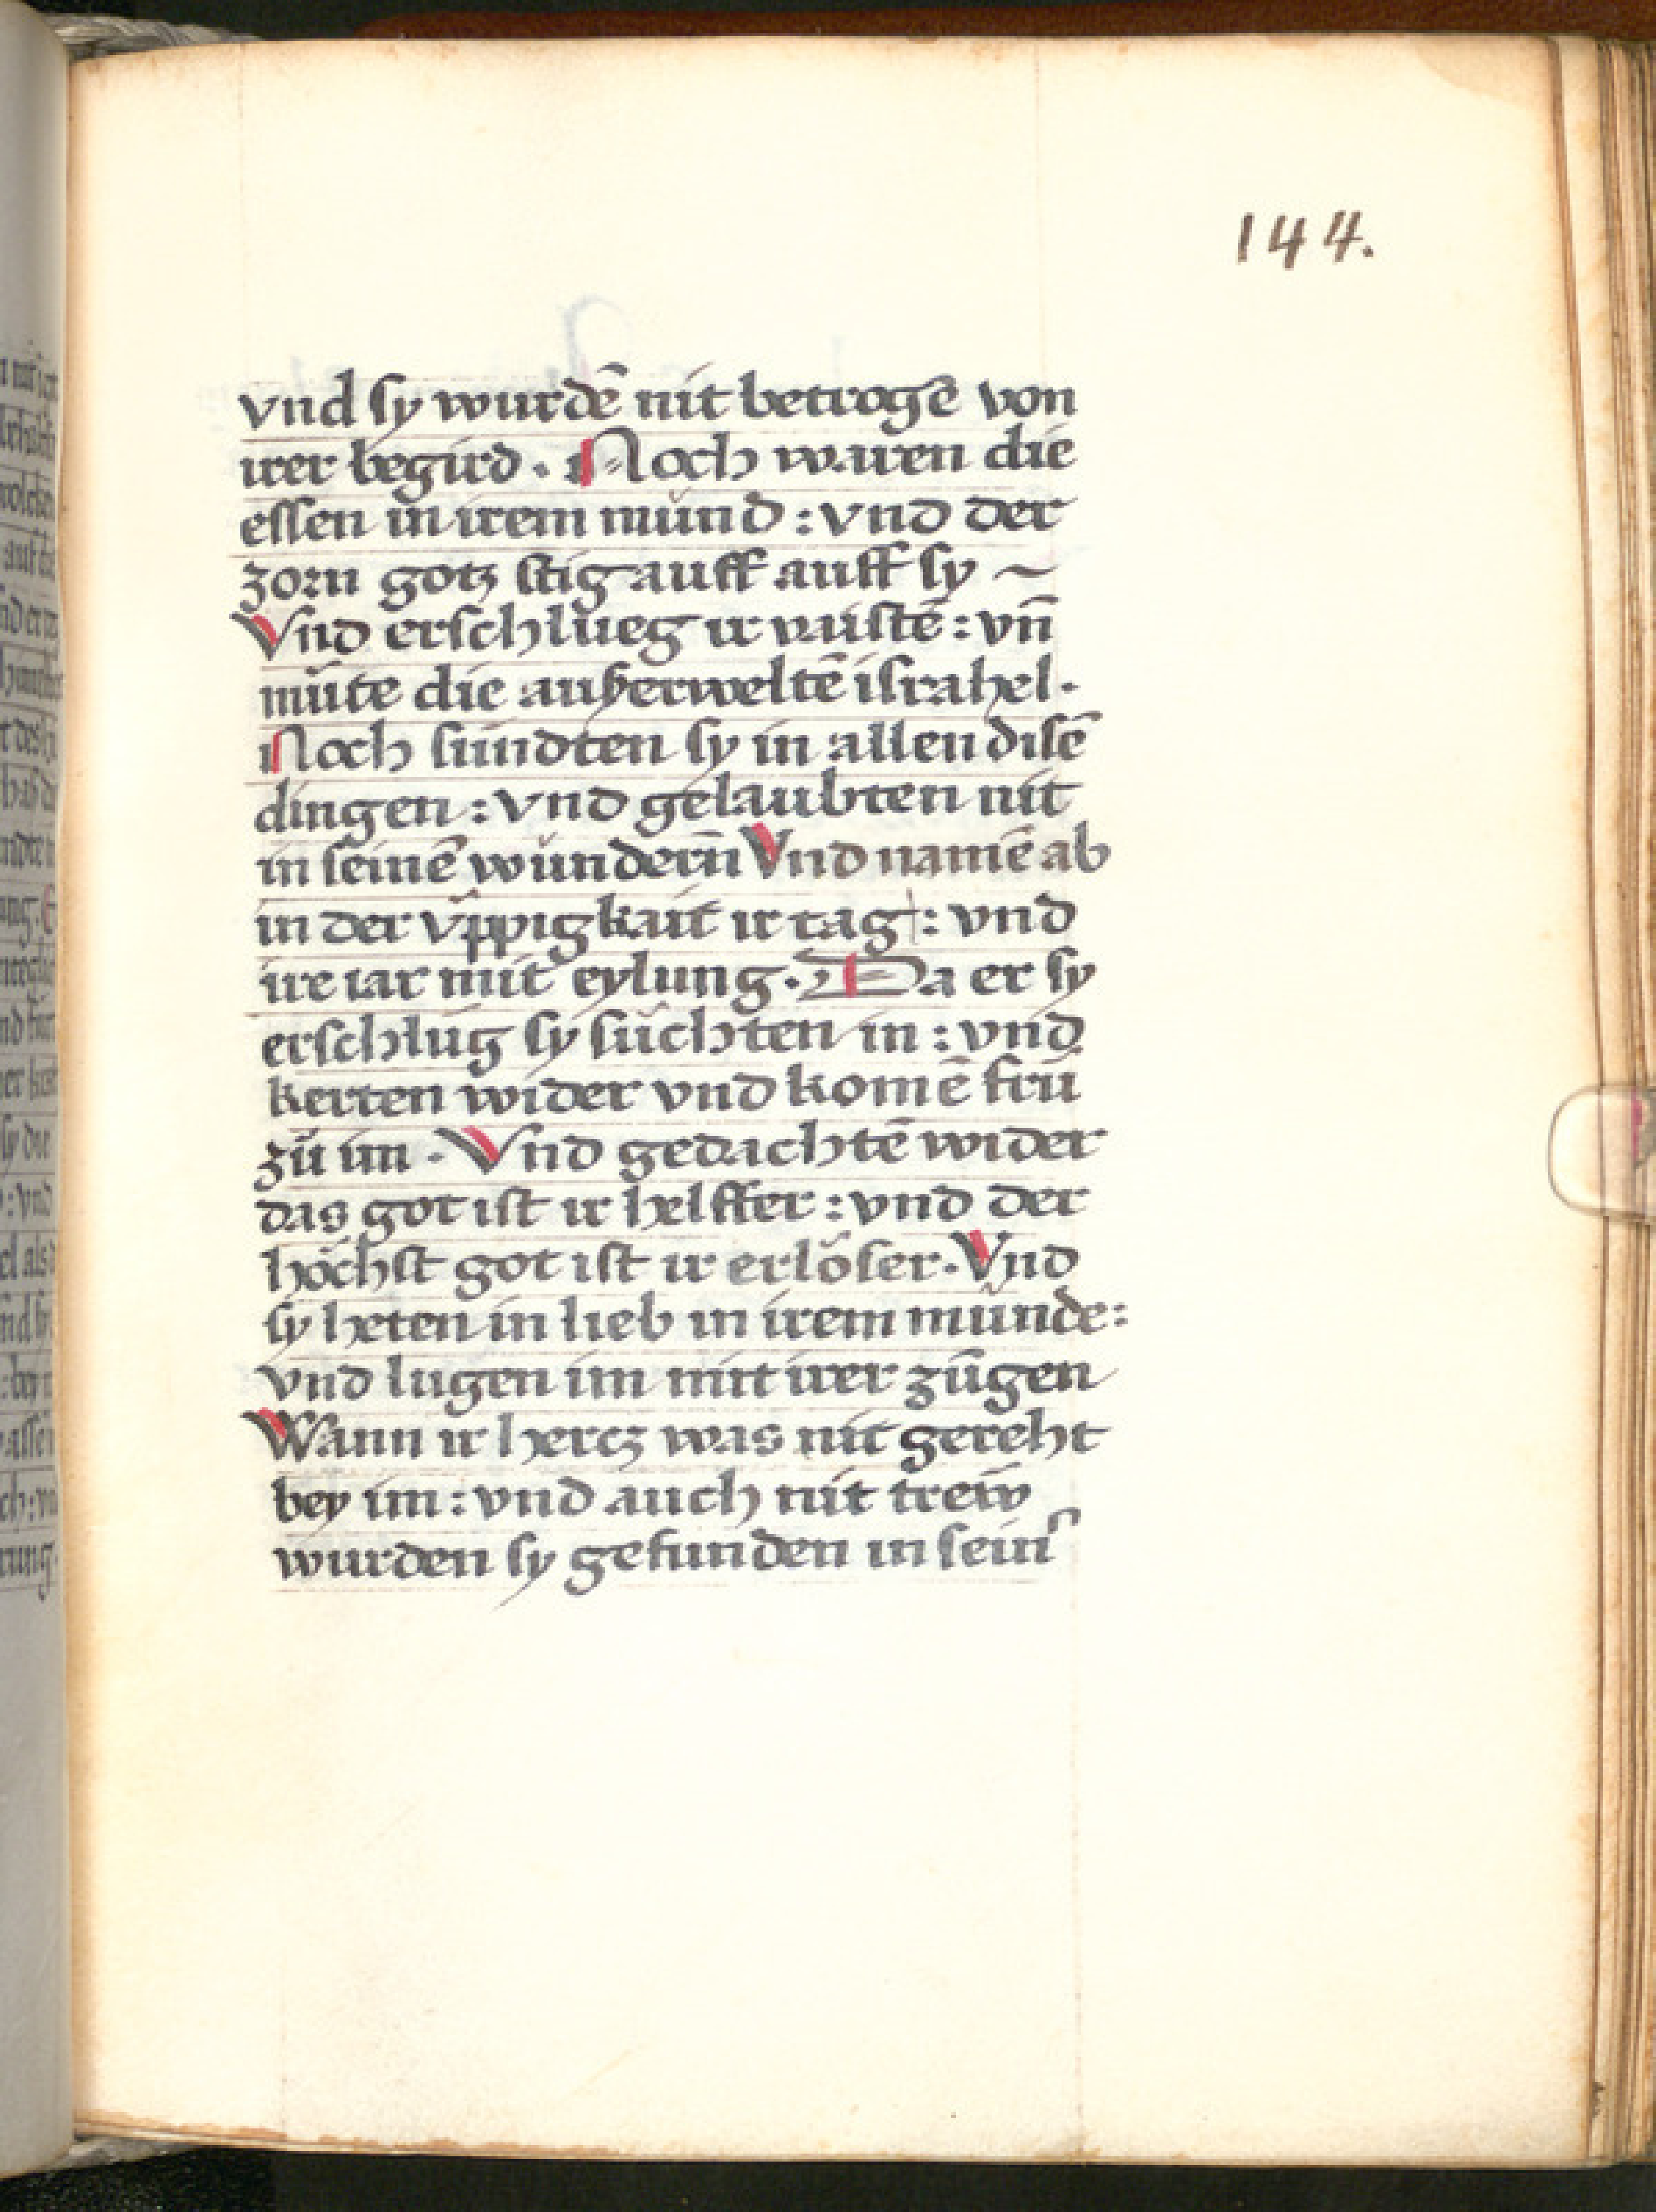 144.
vnd sy wurdē nit betrogē von
irer begird. Noch waren die
essen in irem mund: vnd der
zorn gotz stig auff auff sy ~
Vnd erschlueg ir vaistē: vn̄
müte die außerweltē israhel.
Noch sündten sy in allen disē
dingen: vnd gelaubten nit
in seinē wundern̄ Vnd namē ab
in der v̈ppigkait ir tag: vnd
ire iar mit eylung. Da er sy
erschlug sy sůchten in: vnd
kerten wider vnd komē frü
zů im. Vnd gedachtē wider
das got ist ir helffer: vnd der
höchst got ist ir erlöser. Vnd
sy heten in lieb in irem munde:
vnd lugen im mit irer zungen
Wann ir hercz was nit gereht
bey im: vnd auch nit treẅ
wurden sy gefunden in sein͛